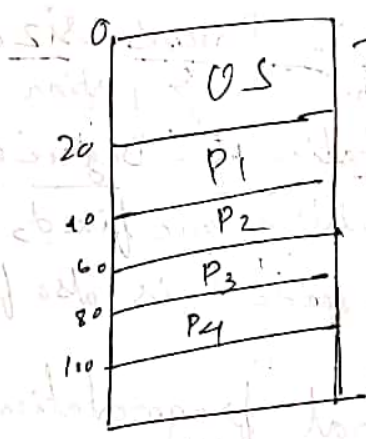 0
OS
20
P1
40
P2
60
P3
80
P4
100